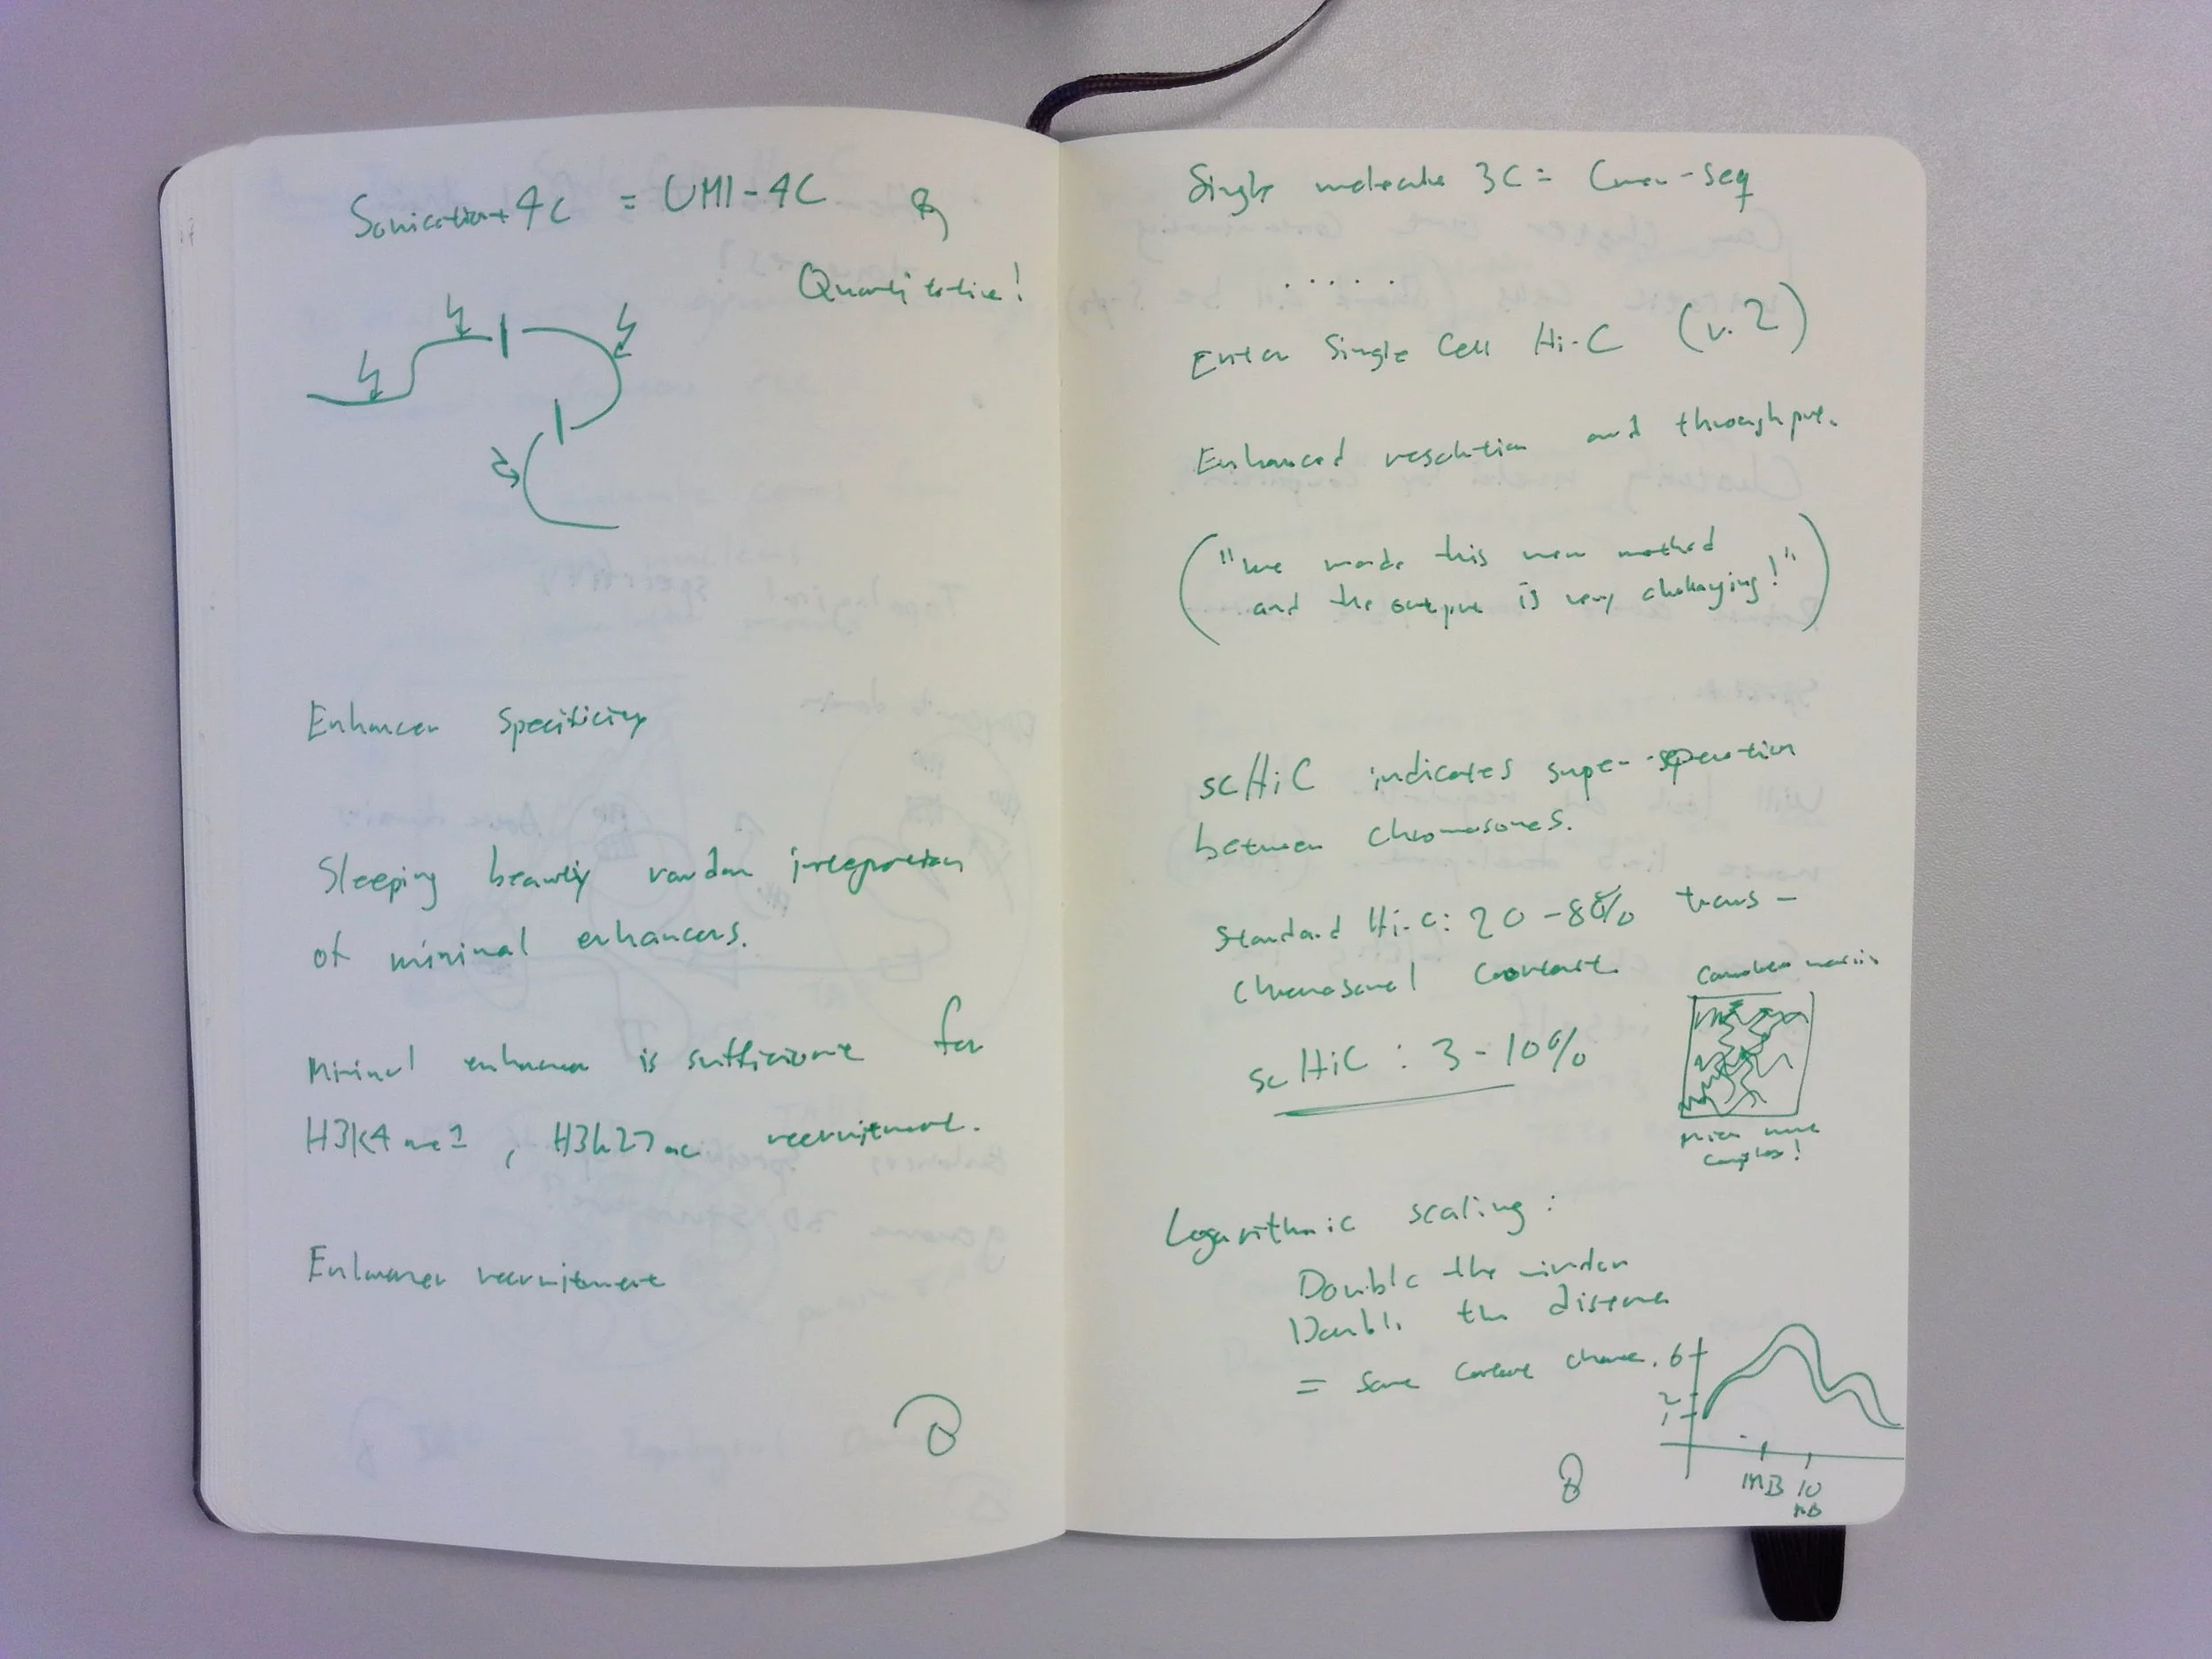 Sonication + 4C = UMI-4C
Quantitative!
Enhancer Specificity
Sleeping beauty random integration
of minimal enhancers.
Minimal enhancer is sufficient for
H3K4me1, H3k27ac recruitment.
Enhancer recruitment
Single molecule 3C = Cmen-seq
.....
Enter Single Cell Hi-C (v.2)
Enhanced resolution and throughput.
("We made this new method
and the output is very challenging!")
scHiC indicates super-seperation
between chromosomes.
Standard Hi-C: 20-80% trans-
chromosomal contact.
scHiC: 3-10%
more
complex!
Logarithmic scaling:
Double the window
Double the distance
= same contact chance.
6
2
1
1MB 10
MB